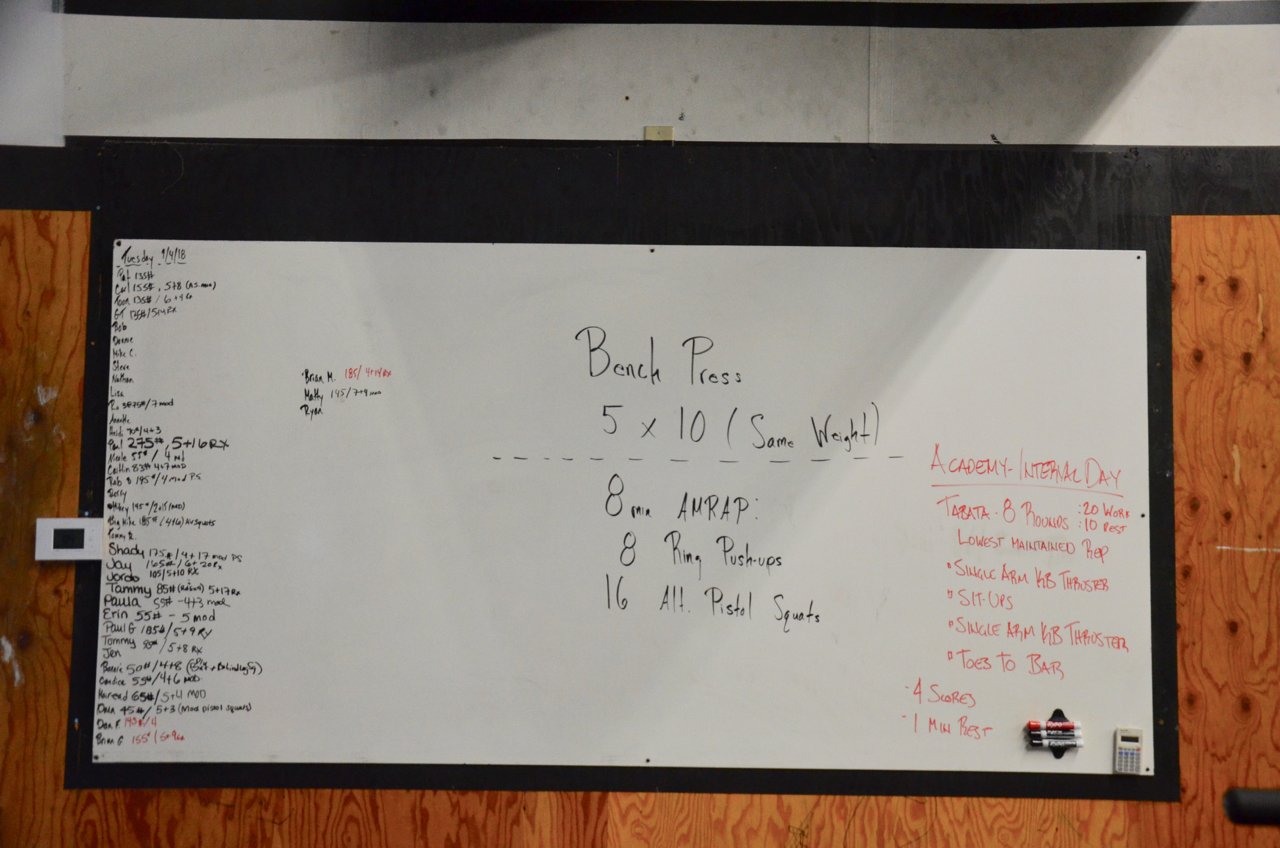 Tuesday 9/4/18
Pat 135#
Carl 155#, 5+8
Toon 135# / 6+
GT 135#/5+4 RX
Rob
Donnie
Mike C.
Steve
Nathan
Lisa
/7 mod
Annette
Heidi 70#/4+3
Paul 275#, 5+16 RX
55# / 4
Caitlin 83# 4+7 MOD
Rob B 195#/4 mod PS
Big Mike 185# (4+6) Air Squats
Shady 175#/4+17 mod PS
Jay 165#/6+20 Rx
Jordo 105/5+10 RX
Tammy 85# 5+17 Rx
Paula 55# -4+3 mod
Erin 55# - 5 mod
Paul G 185#/5+9 RX
Tommy /5+8 RX
Jen
Bonnie 50#/4+8
Candice 55#/4+6 MOD
65#/5+4 MOD
45#/5+3 (Mod pistol squats)
Dan F.
Brian G 155#/5+9 Rx
Brian M. 185/ 4+14 RX
Matty 145/7+9 mod
Ryan
Bench Press
5 x 10 (Same Weight)
8 min AMRAP:
8 Ring Push-ups
16 Alt. Pistol Squats
ACADEMY - INTERVAL DAY
TABATA - 8 ROUNDS :20 WORK
:10 REST
LOWEST MAINTAINED REP
• SINGLE ARM KB THRUSTER
• SIT-UPS
• SINGLE ARM KB THRUSTER
• TOES TO BAR
- 4 SCORES
- 1 MIN REST